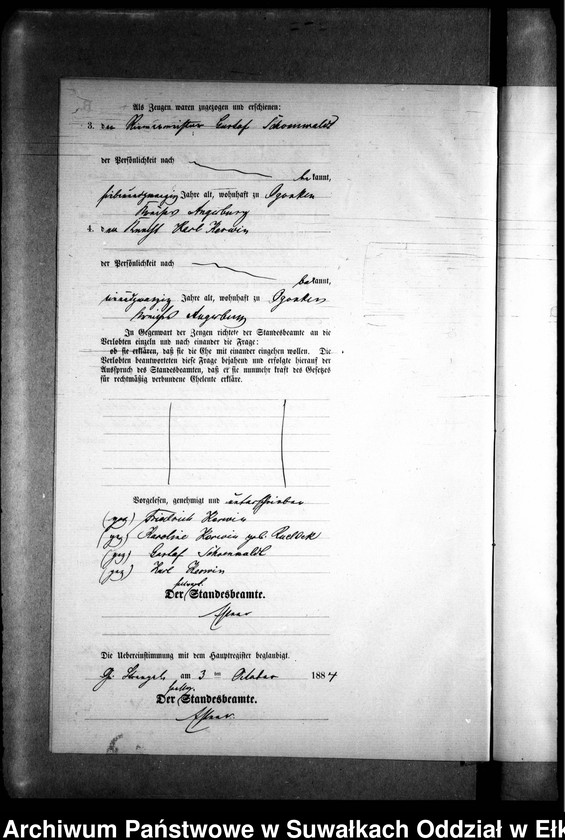 Als Zeugen waren zugezogen und erschienen:
3. Gustaf Schoenwaldt
der Persönlichkeit nach
bekannt,
Jahre alt, wohnhaft zu Ogonken
Kreises Angerburg
4. Knecht Karl Kerwin
der Persönlichkeit nach
bekannt,
Jahre alt, wohnhaft zu Ogonken
Kreises Angerburg
In Gegenwart der Zeugen richtete der Standesbeamte an die
Verlobten einzeln und nach einander die Frage:
ob sie erklären, daß sie die Ehe mit einander eingehen wollen. Die
Verlobten beantworteten diese Frage bejahend und erfolgte hierauf der
Ausspruch des Standesbeamten, daß er sie nunmehr kraft des Gesetzes
für rechtmäßig verbundene Eheleute erkläre.
Vorgelesen, genehmigt und unterschrieben
(gez) Friedrich Kerwin
(gez) Karoline Kerwin geb.
(gez) Gustaf Schoenwaldt
(gez) Karl Kerwin
Der Standesbeamte.
Die Uebereinstimmung mit dem Hauptregister beglaubigt.
Gr. Strengeln am 3 ten Oktober 1884
Der Standesbeamte.
Archiwum Państwowe w Suwałkach Oddział w Ełk